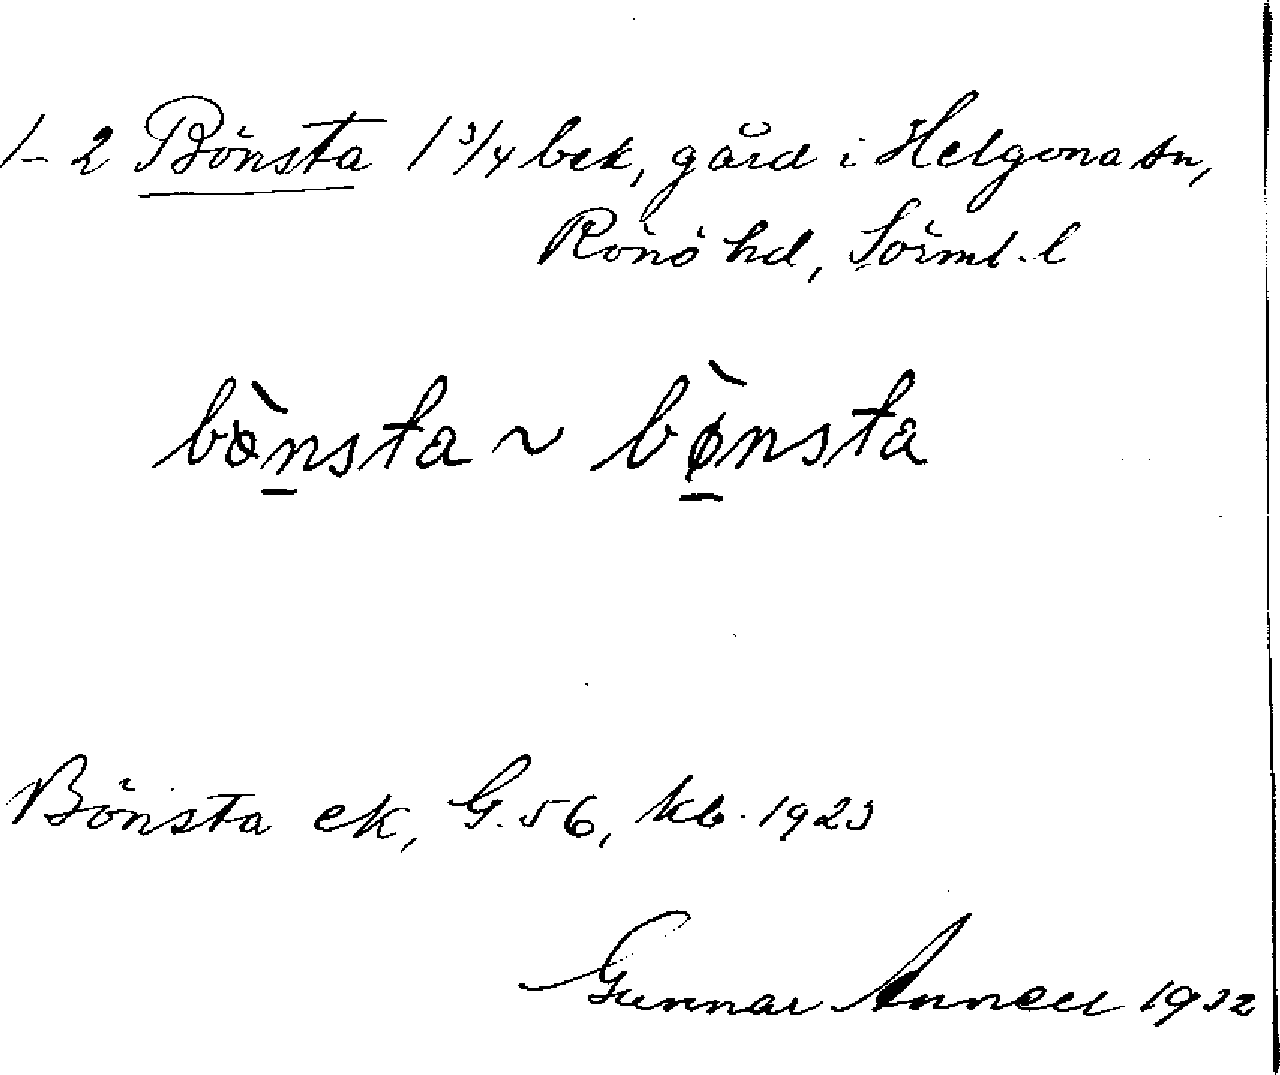 1-2 Bönsta 1 3/4 bek, gård i Helgona sn,
Rönö hd, Sörml. l
bònsta ~ bø̀nsta
Bönsta ek, G. 56, kb. 1923
Gunnar Annell 1932